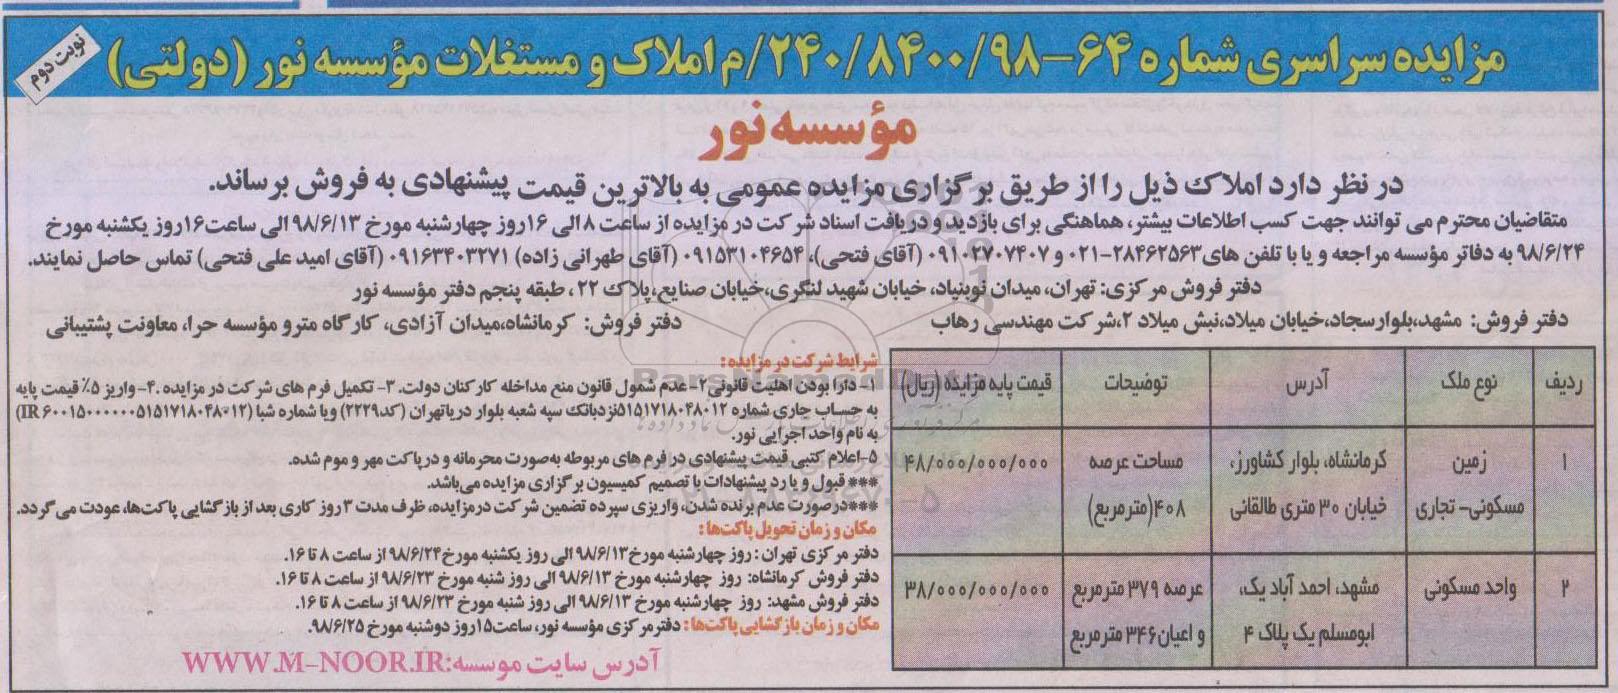 مزایده سراسری شماره ۶۴-۲۴۰/۸۴۰۰/۹۸/م املاک و مستغلات مؤسسه نور (دولتی)
نوبت دوم
مؤسسه نور
در نظر دارد املاک ذیل را از طریق برگزاری مزایده عمومی به بالاترین قیمت پیشنهادی به فروش برساند.
متقاضیان محترم می توانند جهت کسب اطلاعات بیشتر، هماهنگی برای بازدید و دریافت اسناد شرکت در مزایده از ساعت ۸ الی ۱۶ روز چهارشنبه مورخ ۹۸/۶/۱۳ الی ساعت ۱۶ روز یکشنبه مورخ
۹۸/۶/۲۴ به دفاتر مؤسسه مراجعه و یا با تلفن های ۲۸۴۶۲۵۶۳-۰۲۱ و ۰۹۱۰۲۷۰۷۴۰۷ (آقای فتحی)، ۰۹۱۵۳۱۰۴۶۵۴ (آقای طهرانی زاده) ۰۹۱۶۳۴۰۳۲۷۱ (آقای امید علی فتحی) تماس حاصل نمایند.
دفتر فروش مرکزی: تهران، میدان نوبنیاد، خیابان شهید لنگری،خیابان صنایع،پلاک ۲۲ ، طبقه پنجم دفتر مؤسسه نور
دفتر فروش: مشهد،بلوارسجاد،خیابان میلاد،نبش میلاد ۲،شرکت مهندسی رهاب
دفتر فروش: کرمانشاه،میدان آزادی، کارگاه مترو مؤسسه حرا، معاونت پشتیبانی
ردیف نوع ملک آدرس توضیحات قیمت پایه مزایده (ریال)
۱ زمین مسکونی- تجاری کرمانشاه، بلوار کشاورز، خیابان ۳۰ متری طالقانی مساحت عرصه ۴۰۸(مترمربع) ۴۸/۰۰۰/۰۰۰/۰۰۰
۲ واحد مسکونی مشهد، احمد آباد یک، ابومسلم یک پلاک ۴ عرصه ۳۷۹ مترمربع و اعیان ۳۴۶ مترمربع ۳۸/۰۰۰/۰۰۰/۰۰۰
شرایط شرکت در مزایده :
۱- دارا بودن اهلیت قانونی ۲- عدم شمول قانون منع مداخله کارکنان دولت. ۳- تکمیل فرم های شرکت در مزایده .۴- واریز ۵٪ قیمت پایه
به حساب جاری شماره ۵۱۵۱۷۱۸۰۴۸۰۱۲ نزد بانک سپه شعبه بلوار دریا تهران (کد ۲۲۲۹) و یا شماره شبا (IR ۶۰۰۱۵۰۰۰۰۰۰۵۱۵۱۷۱۸۰۴۸۰۱۲)
به نام واحد اجرایی نور.
۵-اعلام کتبی قیمت پیشنهادی در فرم های مربوطه به صورت محرمانه و در پاکت مهر و موم شده.
*** قبول و یا رد پیشنهادات با تصمیم کمیسیون برگزاری مزایده می باشد.
***در صورت عدم برنده شدن، واریزی سپرده تضمین شرکت در مزایده، ظرف مدت ۳ روز کاری بعد از بازگشایی پاکت ها، عودت می گردد.
مکان و زمان تحویل پاکت ها :
دفتر مرکزی تهران : روز چهارشنبه مورخ ۹۸/۶/۱۳ الی روز یکشنبه مورخ ۹۸/۶/۲۴ از ساعت ۸ تا ۱۶.
دفتر فروش کرمانشاه: روز چهارشنبه مورخ ۹۸/۶/۱۳ الی روز شنبه مورخ ۹۸/۶/۲۳ از ساعت ۸ تا ۱۶.
دفتر فروش مشهد: روز چهارشنبه مورخ ۹۸/۶/۱۳ الی روز شنبه مورخ ۹۸/۶/۲۳ از ساعت ۸ تا ۱۶.
مکان و زمان بازگشایی پاکت ها : دفتر مرکزی مؤسسه نور، ساعت ۱۵ روز دوشنبه مورخ ۹۸/۶/۲۵.
آدرس سایت موسسه:WWW.M-NOOR.IR